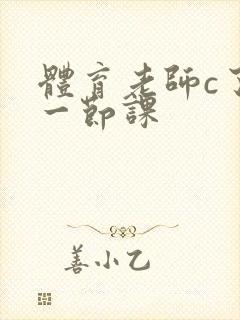 體育老師c了
一節課
善小乙